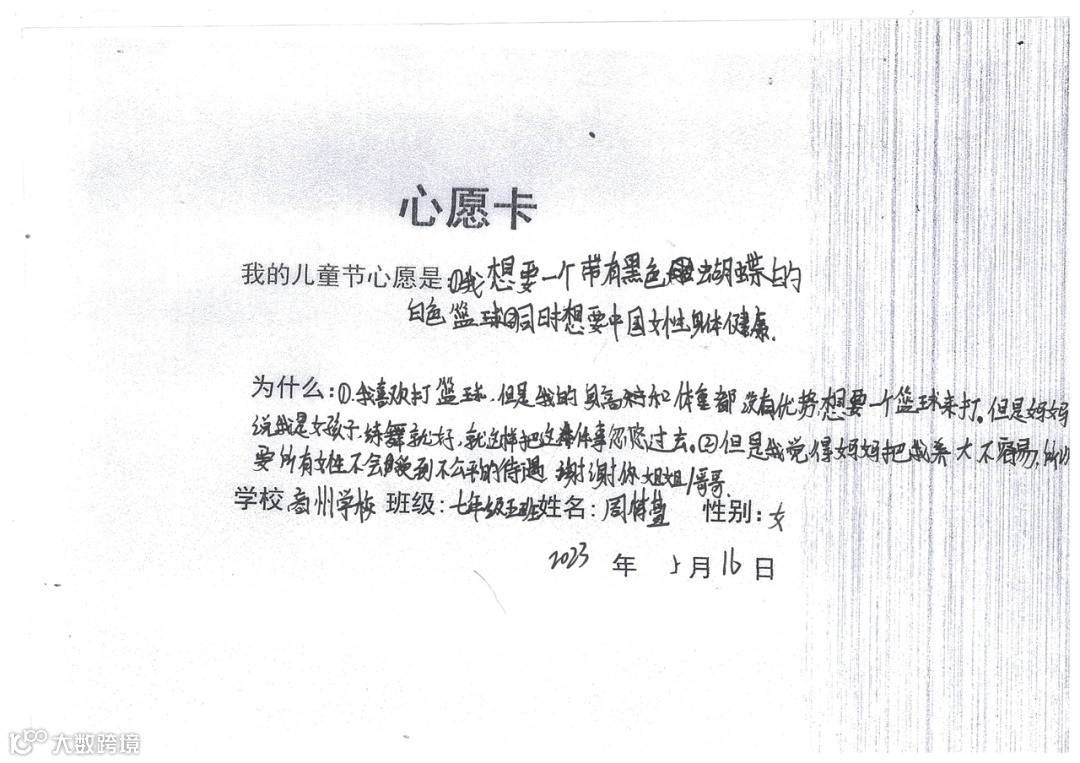 心愿卡
我的儿童节心愿是:①我想要一个带有黑色蝴蝶的
白色篮球②同时想要中国女性身体健康.
为什么:①.我喜欢打篮球.但是我的身高和体重都没有优势,想要一个篮球来打。但是妈妈
说我是女孩子,练舞就好,就这样把这件事忽悠过去。②但是我觉得妈妈把我养大不容易,所以
要所有女性不会受到不公平的待遇 谢谢你姐姐/哥哥.
学校 州学校 班级:七年级五班 姓名:周 性别:女
2023 年 5月16日
大数跨境